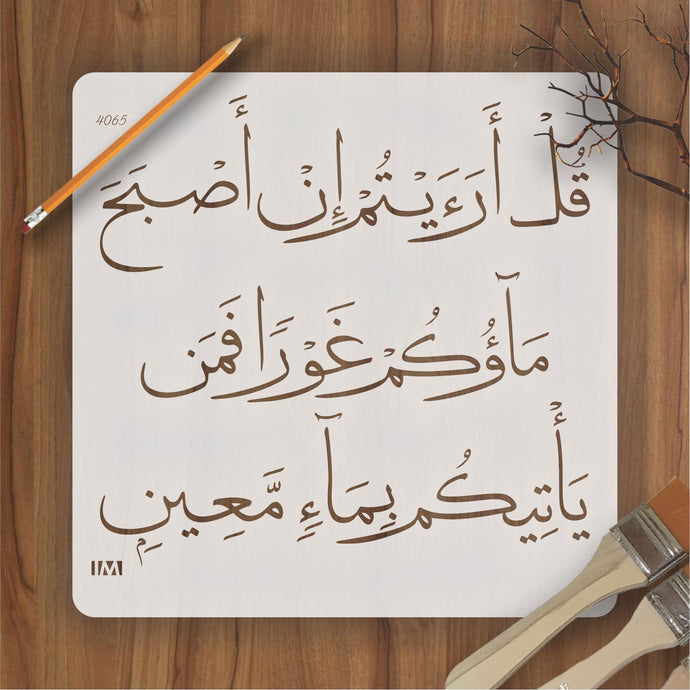 4065
قُلْ أَرَءَيْتُمْ إِنْ أَصْبَحَ
مَآؤُكُمْ غَوْرًا فَمَن
يَأْتِيكُم بِمَآءٍ مَّعِينٍ
IM